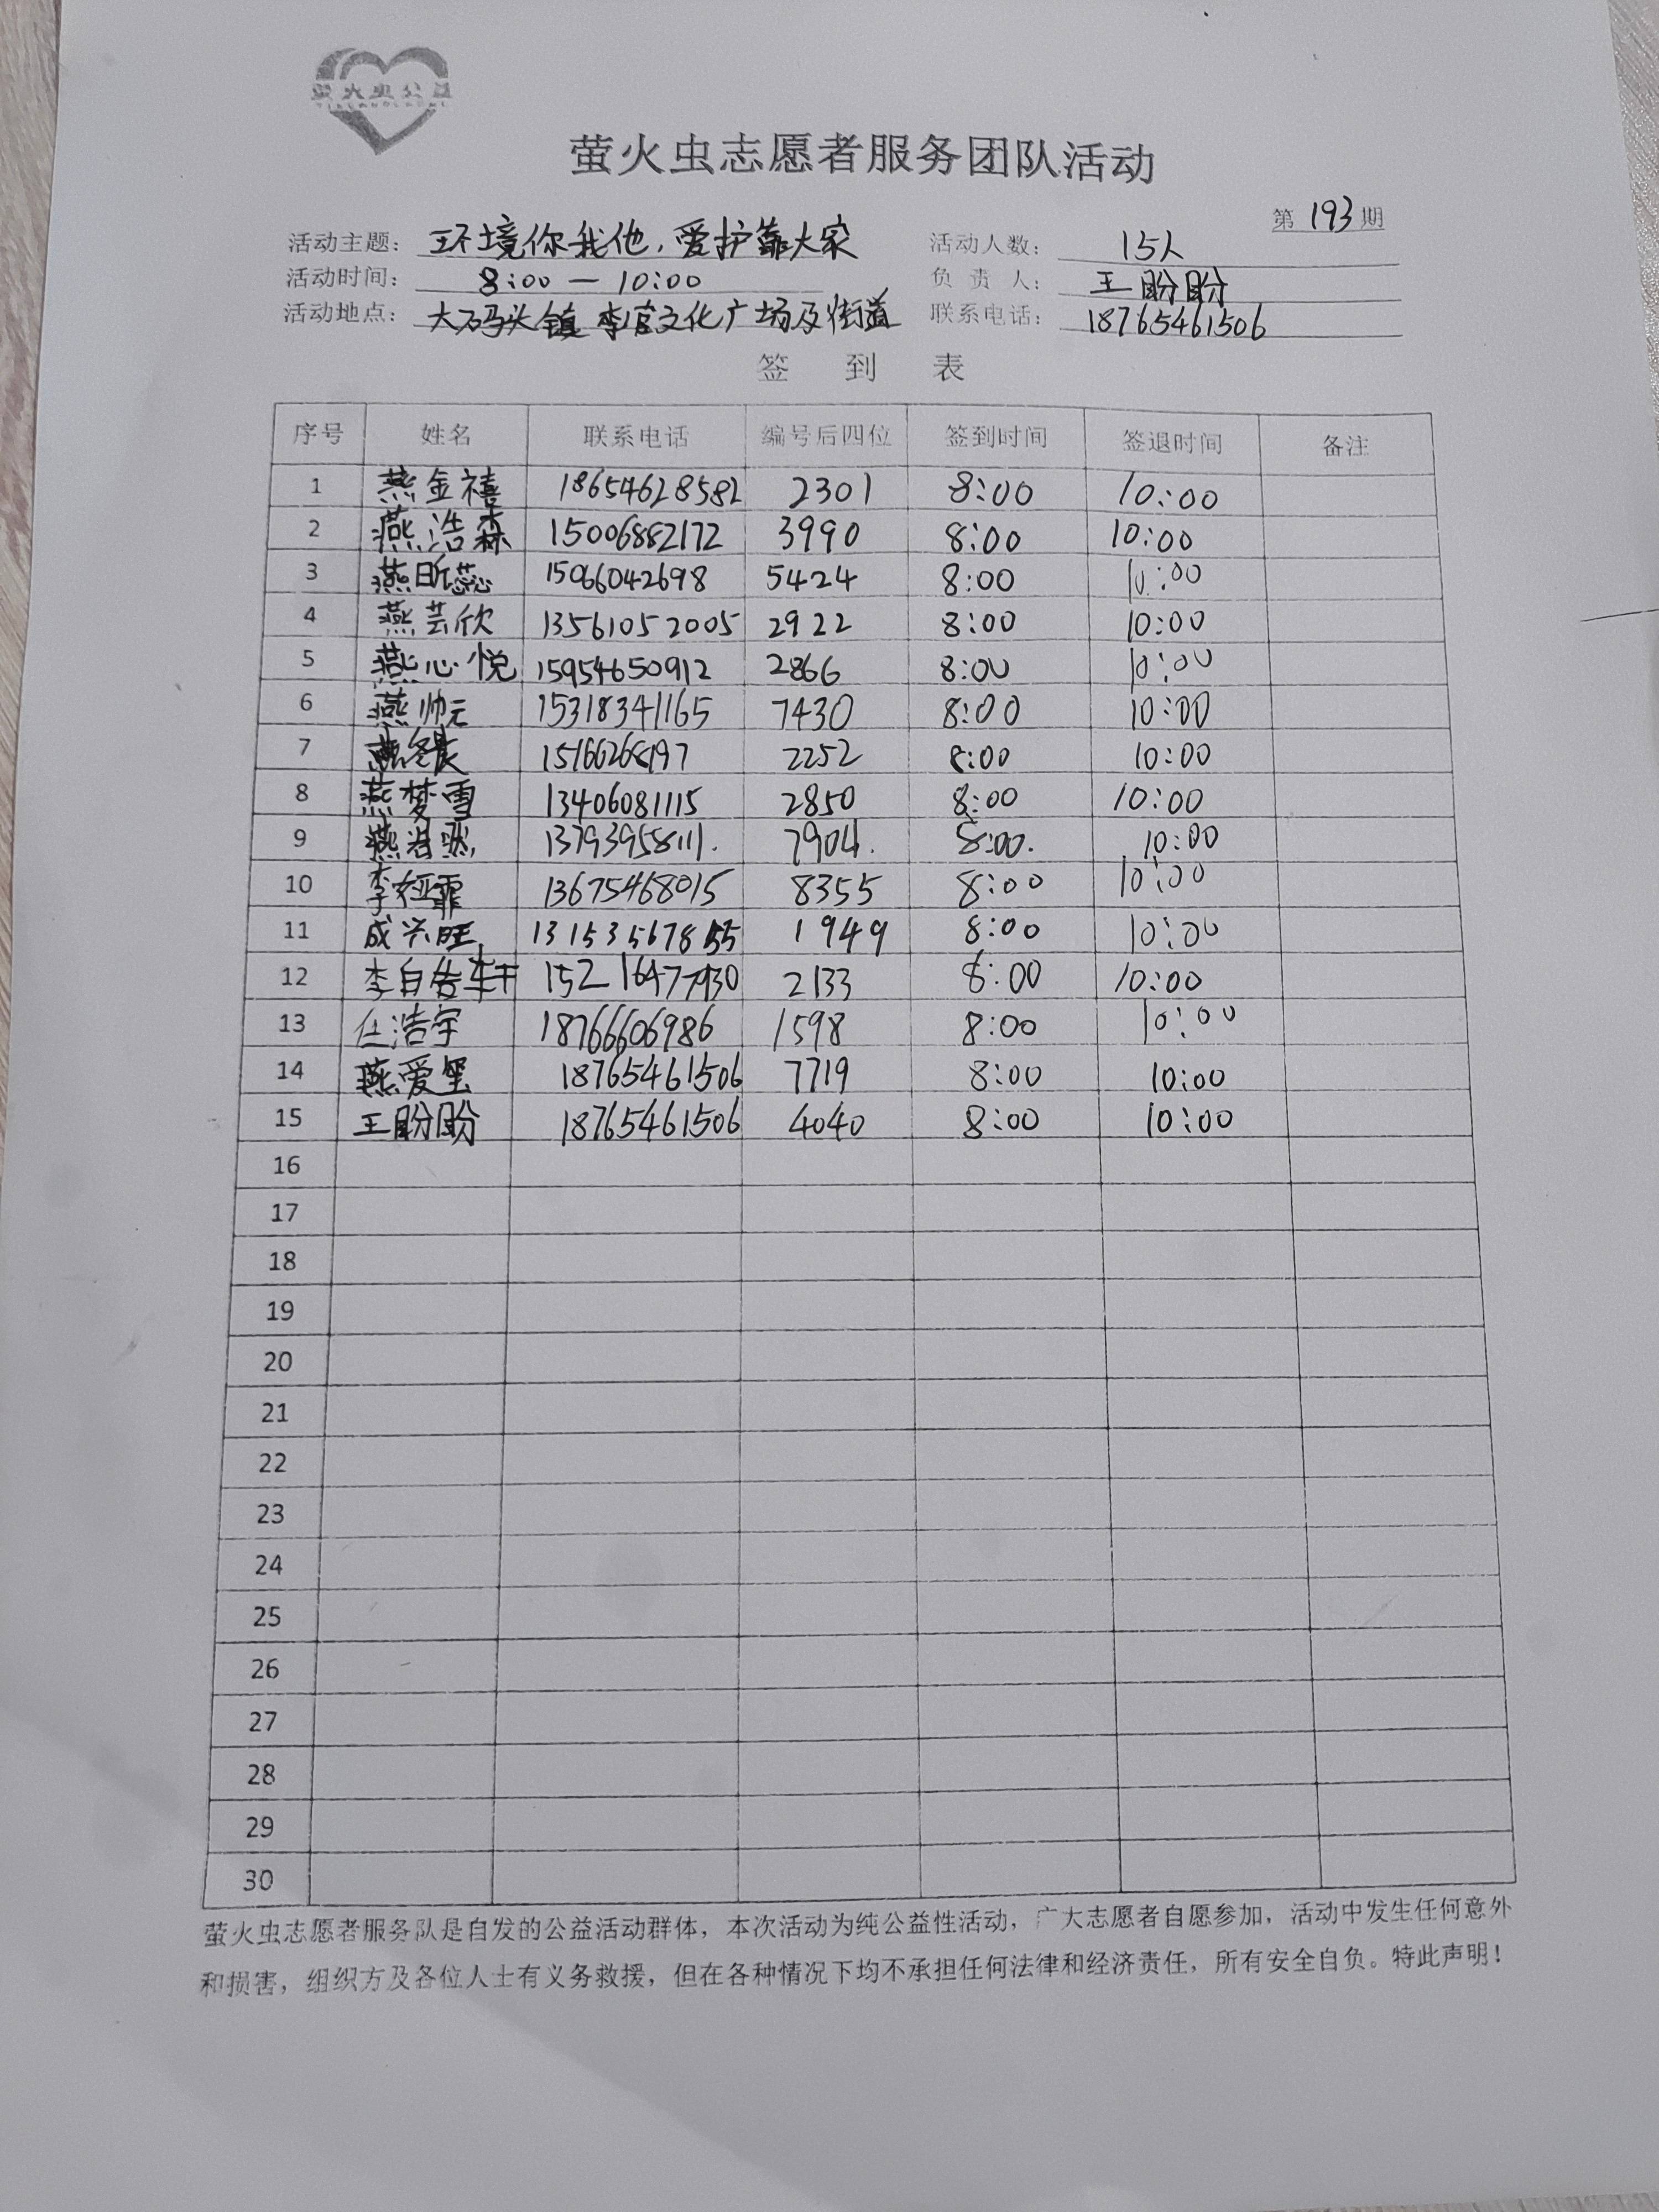 萤火虫公益
萤火虫志愿者服务团队活动
第 193 期
活动主题: 环境你我他，爱护靠大家 活动人数: 15人
活动时间: 8:00 — 10:00 负 责 人: 王盼盼
活动地点: 大码头镇李官文化广场及街道 联系电话: 18765461506
签 到 表
序号 姓名 联系电话 编号后四位 签到时间 签退时间 备注
1 燕金禧 18654628582 2301 8:00 10:00
2 燕浩森 15006882172 3990 8:00 10:00
3 燕昕蕊 15066042698 5424 8:00 10:00
4 燕芸欣 13561052005 2922 8:00 10:00
5 燕心悦 15954650912 2866 8:00 10:00
6 燕帅元 15318341165 7430 8:00 10:00
7 2252 8:00 10:00
8 燕梦雪 13406081115 2850 8:00 10:00
9 燕浩然 13793958111. 7904. 8:00. 10:00
10 13675468015 8355 8:00 10:00
11 成兴旺 1949 8:00 10:00
12 2133 8:00 10:00
13 任浩宇 18766606986 1598 8:00 10:00
14 燕爱玺 18765461506 7719 8:00 10:00
15 王盼盼 18765461506 4040 8:00 10:00
16
17
18
19
20
21
22
23
24
25
26
27
28
29
30
萤火虫志愿者服务队是自发的公益活动群体，本次活动为纯公益性活动，广大志愿者自愿参加，活动中发生任何意外
和损害，组织方及各位人士有义务救援，但在各种情况下均不承担任何法律和经济责任，所有安全自负。特此声明！